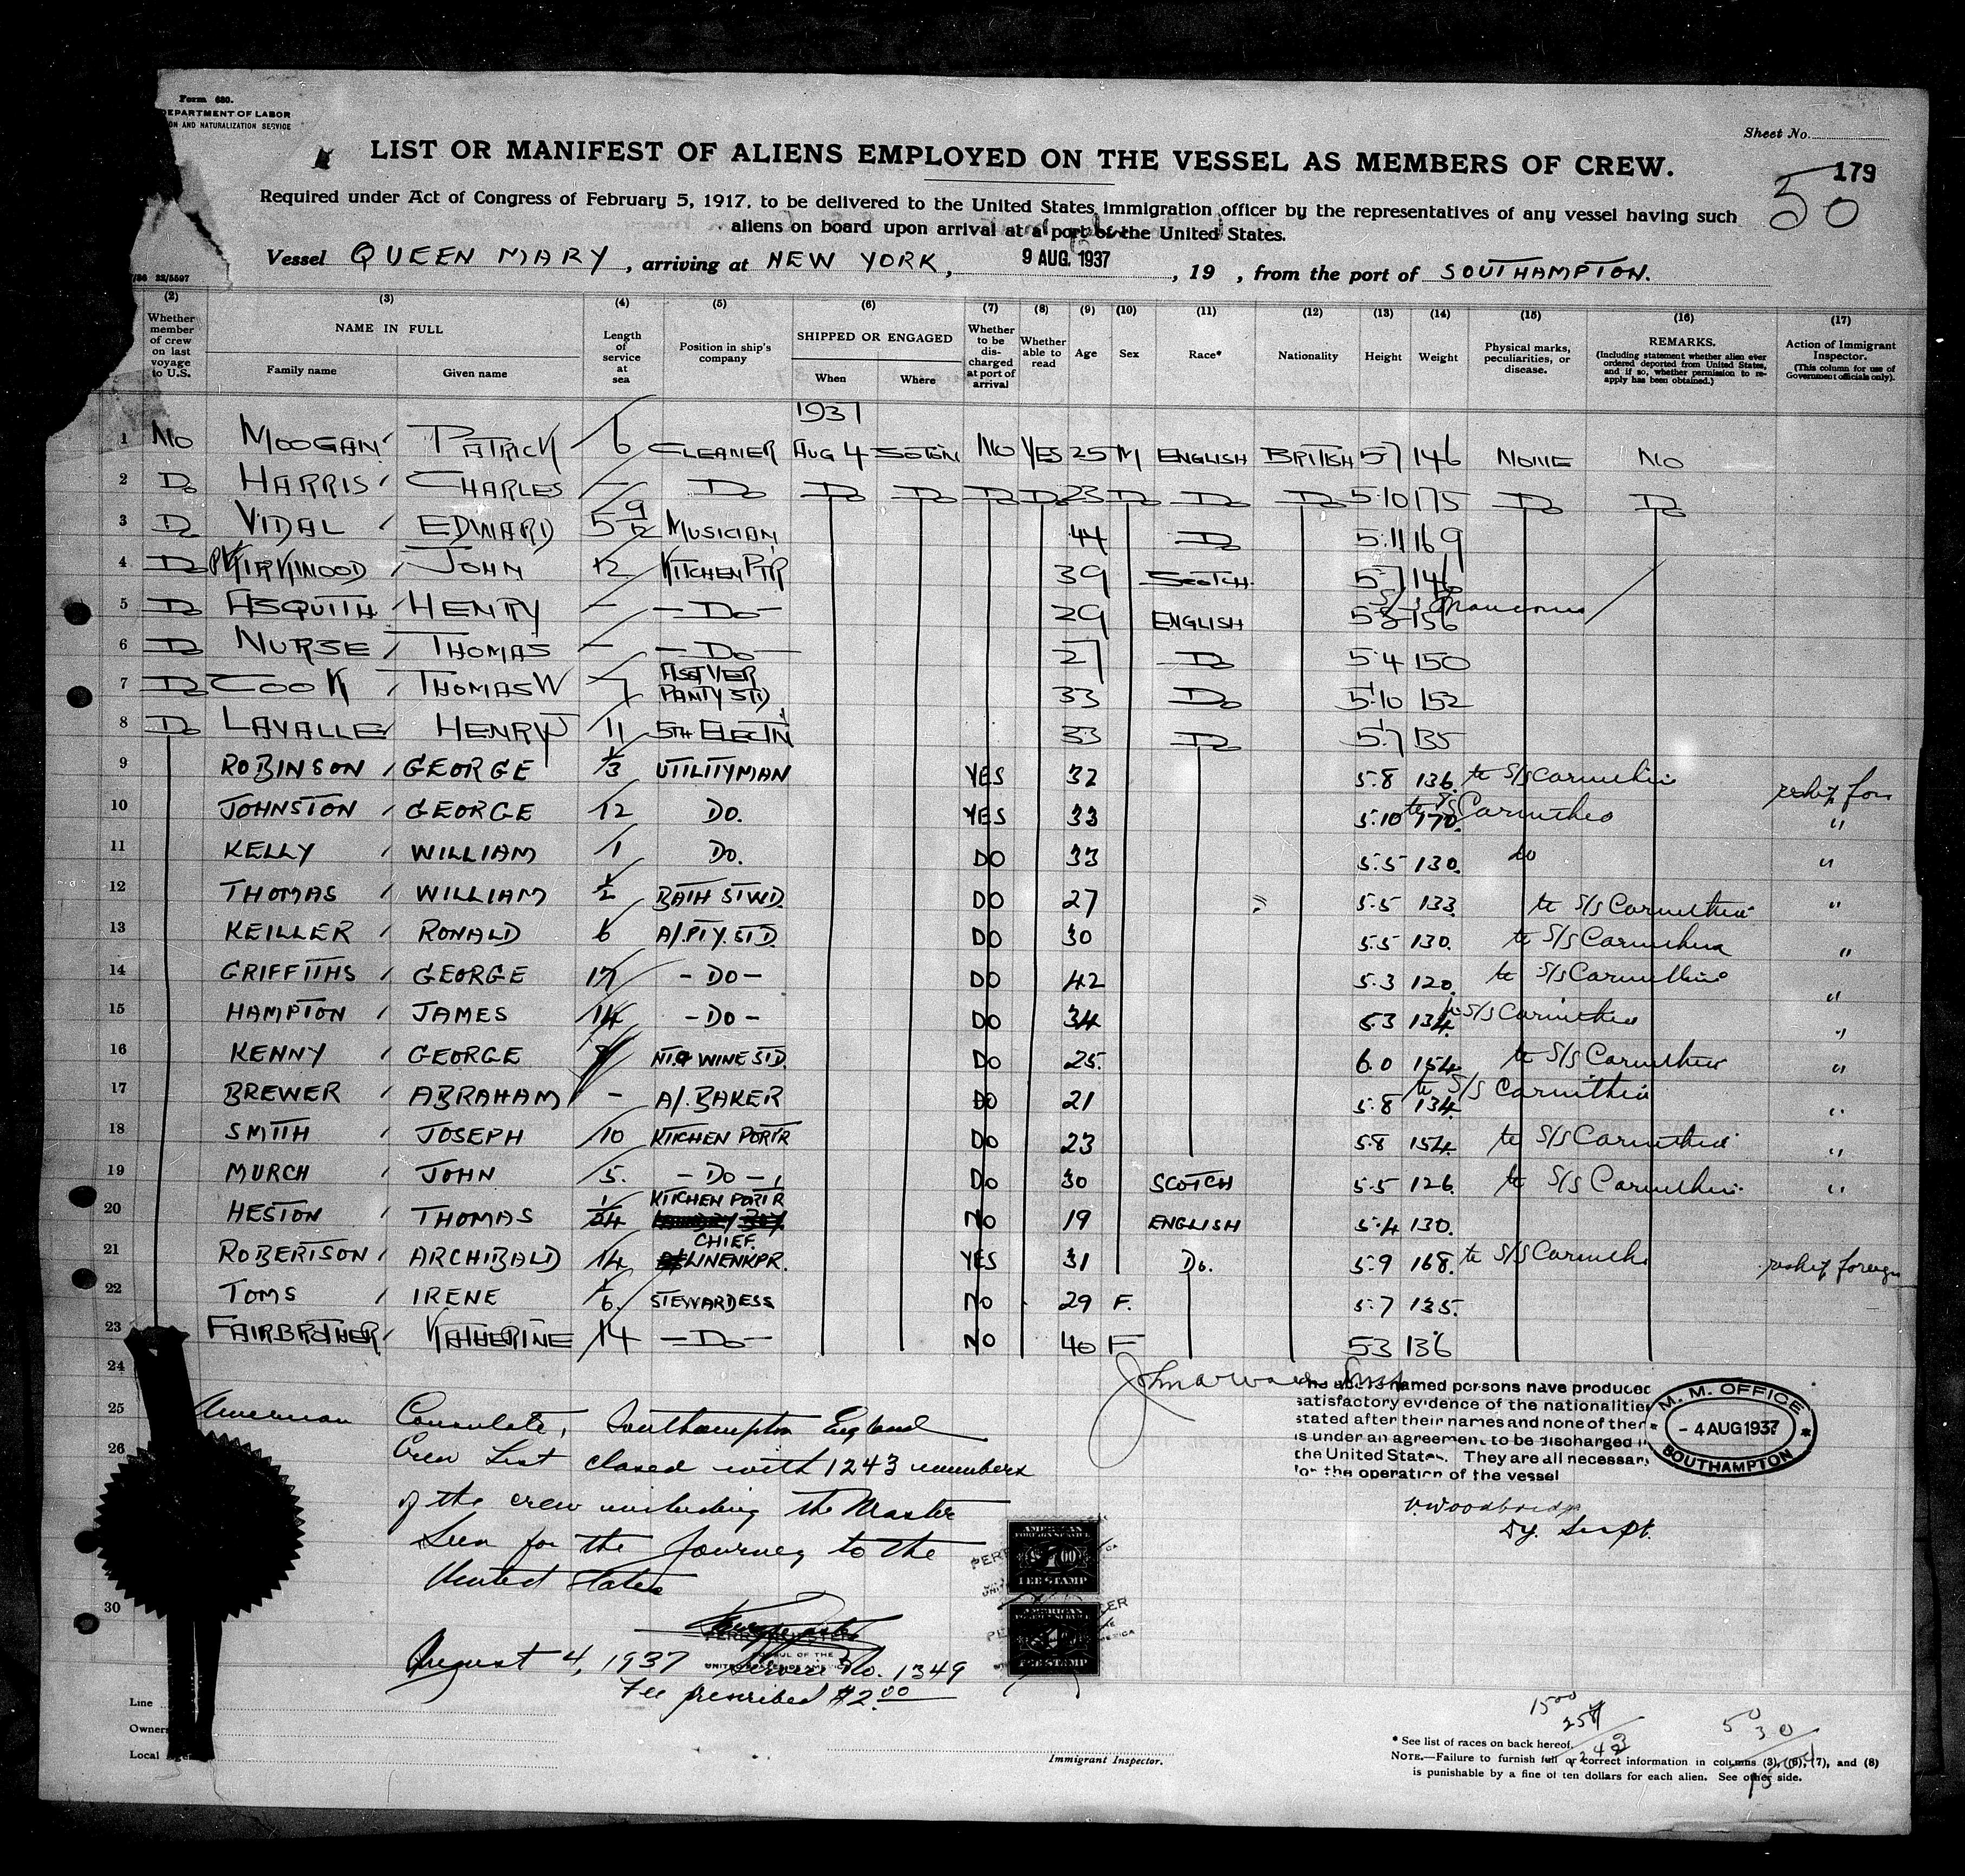 Form 680.
DEPARTMENT OF LABOR
ON AND NATURALIZATION SERVICE
Sheet No.
LIST OR MANIFEST OF ALIENS EMPLOYED ON THE VESSEL AS MEMBERS OF CREW.
179
50
Required under Act of Congress of February 5, 1917, to be delivered to the United States immigration officer by the representatives of any vessel having such
aliens on board upon arrival at a port of the United States.
Vessel QUEEN MARY, arriving at NEW YORK, 9 AUG. 1937, 19 , from the port of SOUTHAMPTON.
(2) (3) (4) (5) (6) (7) (8) (9) (10) (11) (12) (13) (14) (15) (16) (17)
Whether member of crew on last voyage to U.S.
NAME IN FULL
Family name Given name
Length of service at sea
Position in ship's company
SHIPPED OR ENGAGED
When Where
Whether to be discharged at port of arrival
Whether able to read
Age Sex Race* Nationality Height Weight
Physical marks, peculiarities, or disease.
REMARKS.
(Including statement whether alien ever ordered deported from United States, and if so, whether permission to reapply has been obtained.)
Action of Immigrant Inspector.
(This column for use of Government officials only).
1937
1 NO MOOGAN PATRICK 6 CLEANER AUG 4 SOTON NO YES 25 M ENGLISH BRITISH 5.7 146 NONE NO
2 Do HARRIS CHARLES – Do Do Do Do Do 23 Do Do Do 5.10 175 Do Do
3 Do VIDAL EDWARD 5 9/12 MUSICIAN 44 Do 5.11 169
4 Do KIRKWOOD JOHN 12 KITCHEN PTR 39 SCOTCH. 5.7 146
5 Do ASQUITH HENRY – – Do – 29 ENGLISH 156
6 Do NURSE THOMAS – – Do – 27 Do 5.4 150
7 Do COOK THOMAS W PANTY STD 33 Do 5.10 152
8 Do LAVALLE HENRY J 11 5TH ELECTN 33 Do 5.7 135
9 ROBINSON GEORGE 1/3 UTILITYMAN YES 32 5.8 136. to S/S Carinthia reship for
10 JOHNSTON GEORGE 12 DO. YES 33 5.10 170. to S/S Carinthia "
11 KELLY WILLIAM 1 DO. DO 33 5.5 130. do "
12 THOMAS WILLIAM 1/2 BATH STWD. DO 27 5.5 133. to S/S Carinthia "
13 KEILLER RONALD 6 A/.PTY.STD. DO 30 5.5 130. to S/S Carinthia "
14 GRIFFITHS GEORGE 17 – DO – DO 42 5.3 120. to S/S Carinthia "
15 HAMPTON JAMES 14 – DO – DO 34 5.3 134. to S/S Carinthia "
16 KENNY GEORGE WINE STD. DO 25. 6.0 154. to S/S Carinthia "
17 BREWER ABRAHAM – A/. BAKER DO 21 5.8 134. to S/S Carinthia "
18 SMITH JOSEPH 10 KITCHEN PORTR DO 23 5.8 154. to S/S Carinthia "
19 MURCH JOHN 5. – DO – DO 30 SCOTCH 5.5 126. to S/S Carinthia "
20 HESTON THOMAS 1/24 KITCHEN PORTR NO 19 ENGLISH 5.4 130.
21 ROBERTSON ARCHIBALD 14 CHIEF LINENKPR. YES 31 Do. 5.9 168. to S/S Carinthia reship foreign
22 TOMS IRENE 1/6. STEWARDESS NO 29 F. 5.7 135.
23 FAIRBROTHER KATHERINE 14 – Do – NO 40 F 5.3 136
24
25
26
30
American Consulate, Southampton England
Crew List closed with 1243 members
of the crew including the Master
Seen for the Journey to the
United States
August 4, 1937 Service No. 1349
Fee prescribed $2.00
AMERICAN
FOREIGN SERVICE
FEE STAMP
AMERICAN
FOREIGN SERVICE
FEE STAMP
The above named persons have produced
satisfactory evidence of the nationalities
stated after their names and none of them
is under an agreement to be discharged in
the United States. They are all necessary
for the operation of the vessel
M. M. OFFICE
- 4 AUG 1937
SOUTHAMPTON
Woodbridge
Dy. Supt.
Line
Owners
Local
Immigrant Inspector.
* See list of races on back hereof.
NOTE.—Failure to furnish full or correct information in columns (3), (6), (7), and (8)
is punishable by a fine of ten dollars for each alien. See other side.